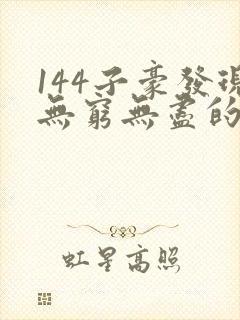 144子豪發現
無窮無盡的
虹星高照